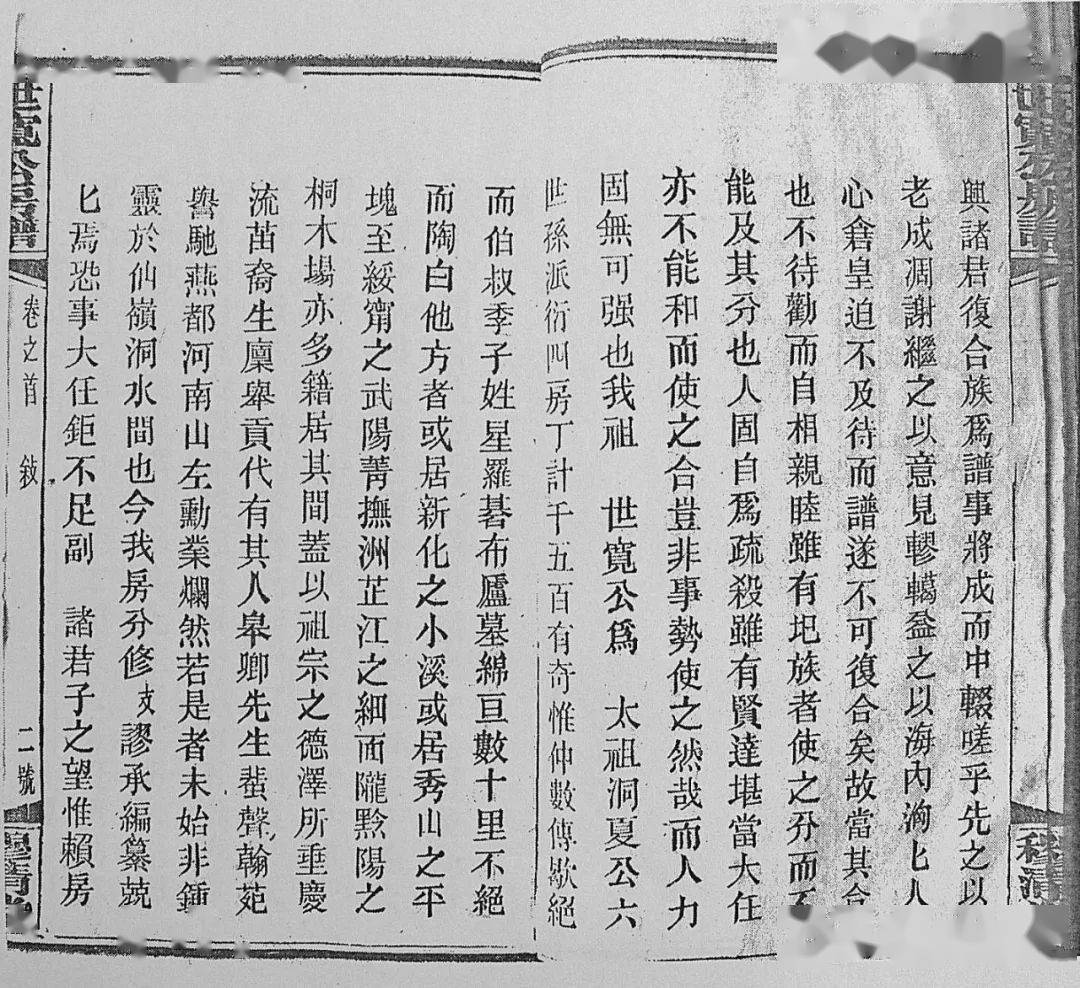 興諸君復合族爲譜事將成而中輟嗟乎先之以
老成凋謝繼之以意見轇轕益之以海內洶匕人
心倉皇迫不及待而譜遂不可復合矣故當其合
也不待勸而自相親睦雖有圯族者使之分而不
能及其分也人固自爲疏殺雖有賢達堪當大任
亦不能和而使之合豈非事勢使之然哉而人力
固無可强也我祖 世寬公爲 太祖洞夏公六
世孫派衍四房丁計千五百有奇惟仲數傳歇絕
而伯叔季子姓星羅碁布廬墓綿亘數十里不絕
而陶白他方者或居新化之小溪或居秀山之平
塊至綏甯之武陽菁撫洲芷江之細面隴黔陽之
桐木場亦多籍居其間蓋以祖宗之德澤所垂慶
流苗裔生廩舉貢代有其人皋卿先生蜚聲翰苑
譽馳燕都河南山左勳業爛然若是者未始非鍾
靈於仙嶺洞水間也今我房分修支譜謬承編纂兢
匕焉恐事大任鉅不足副 諸君子之望惟賴房
世寬公房譜
卷之首 敍
二號
世寬公房譜